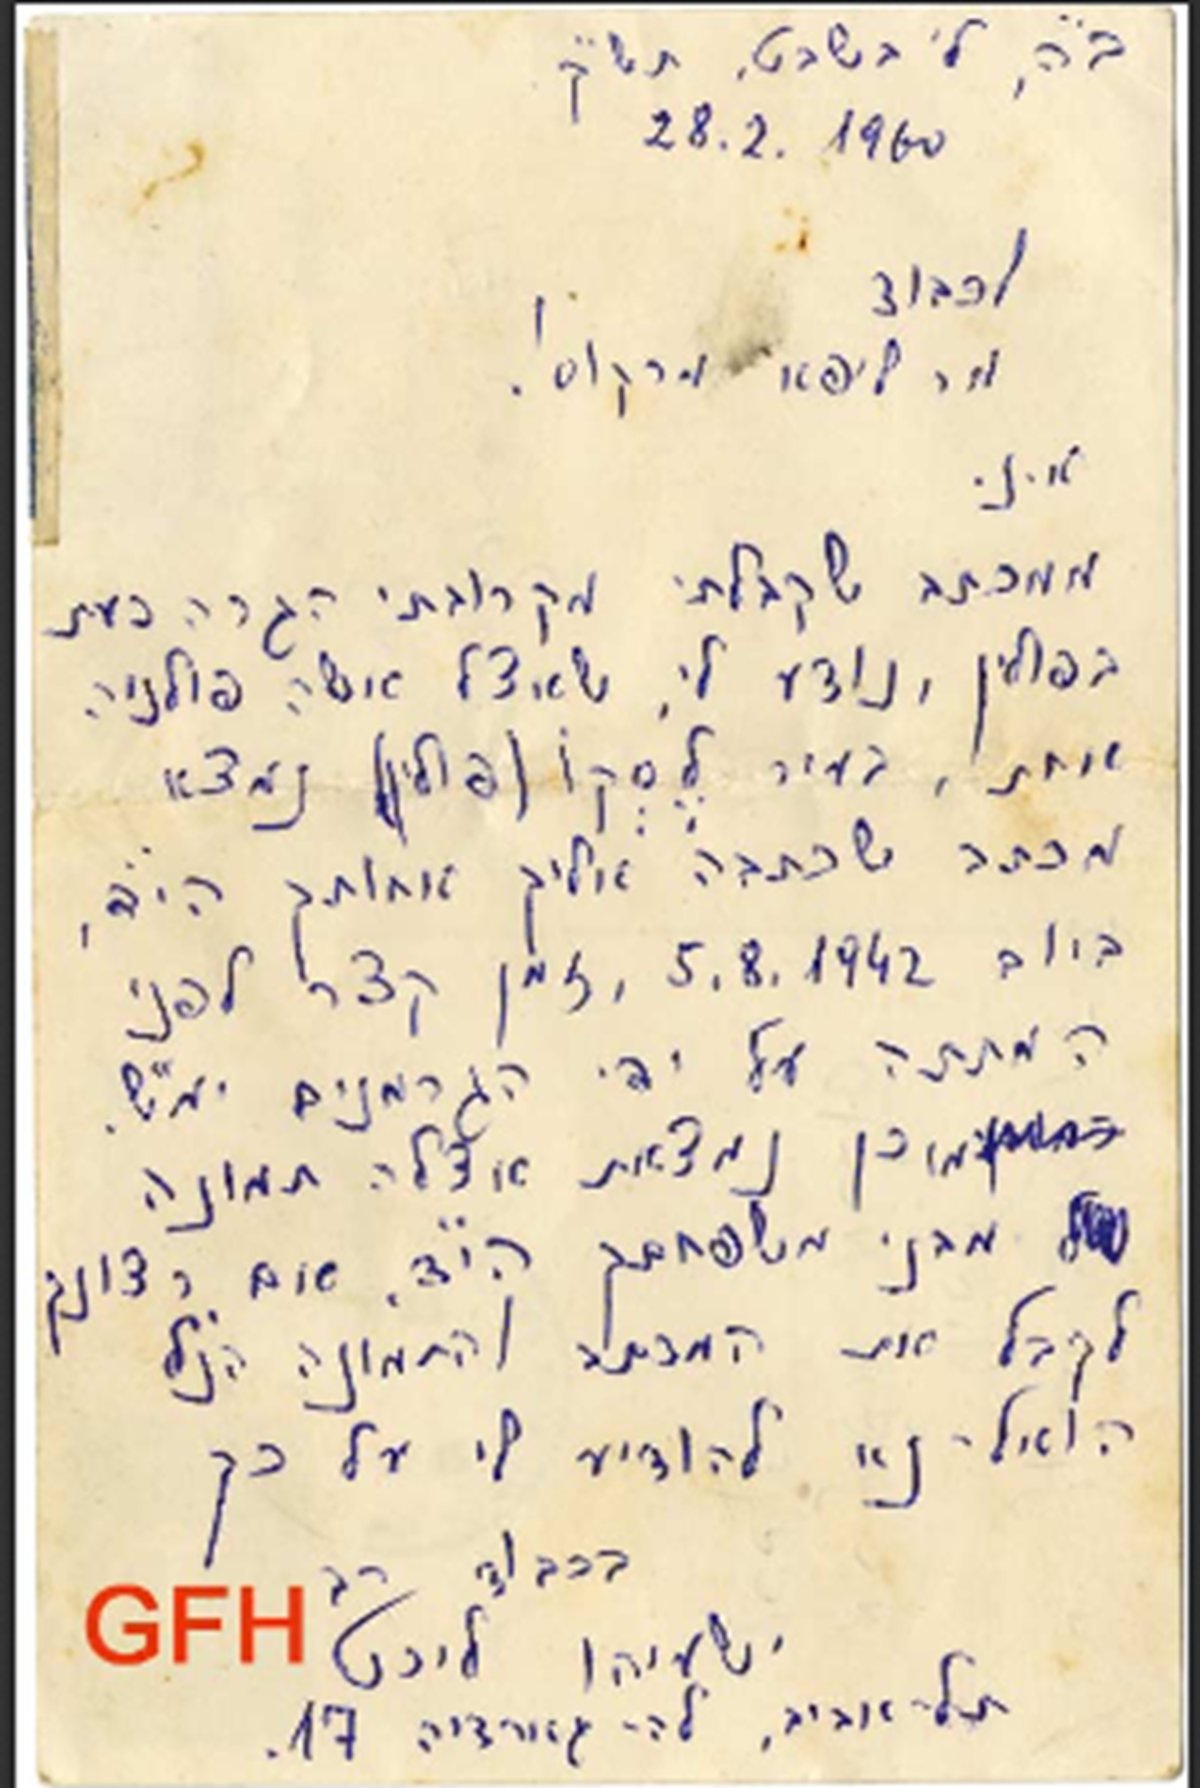 ב"ה, ל' בשבט, תש"ך
28.2.1960
לכבוד
מר ליפא מרקוס!
א.נ.
ממכתב שקבלתי מקרובתי הגרה כעת
בפולין, נודע לי, שאצל אשה פולניה
אחת, בעיר לֶסְקוֹ (פולין) נמצא
מכתב שכתבה אליך אחותך הי"ד,
ביום 5.8.1942, זמן קצר לפני
המתתה על ידי הגרמנים ימ"ש.
כן נמצאת אצלה תמונה
מבני משפחתך הי"ד. אם רצונך
לקבל את המכתב והתמונה הנ"ל
הואיל-נא להודיע לי על כך
בכבוד רב
GFH
ישעיהו ליכט
תל-אביב, לה-גארדיה 17.